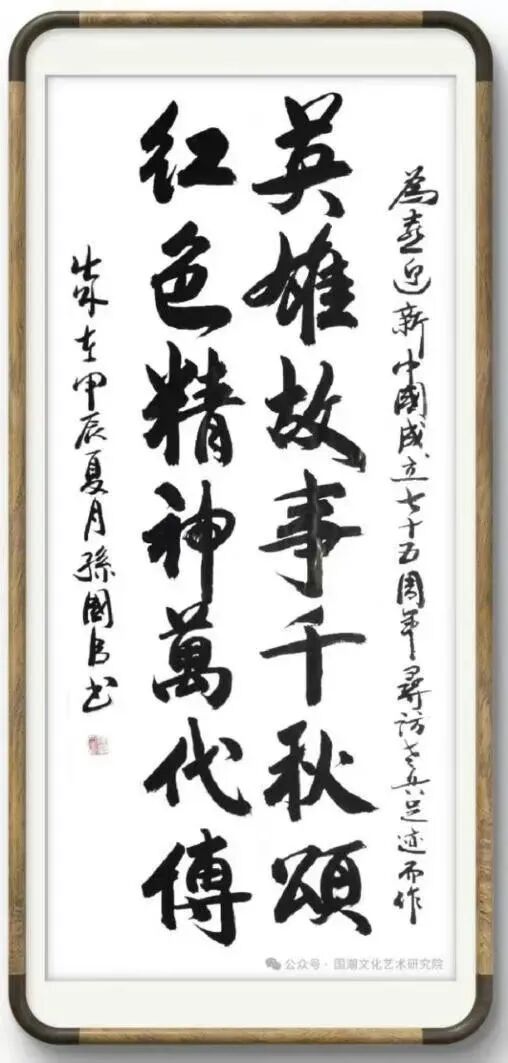 為喜迎新中國成立七十五周年尋訪老兵足迹而作
英雄故事千秋頌
紅色精神萬代傳
甲辰夏月孫國
书
公众号·国潮文化艺术研究院